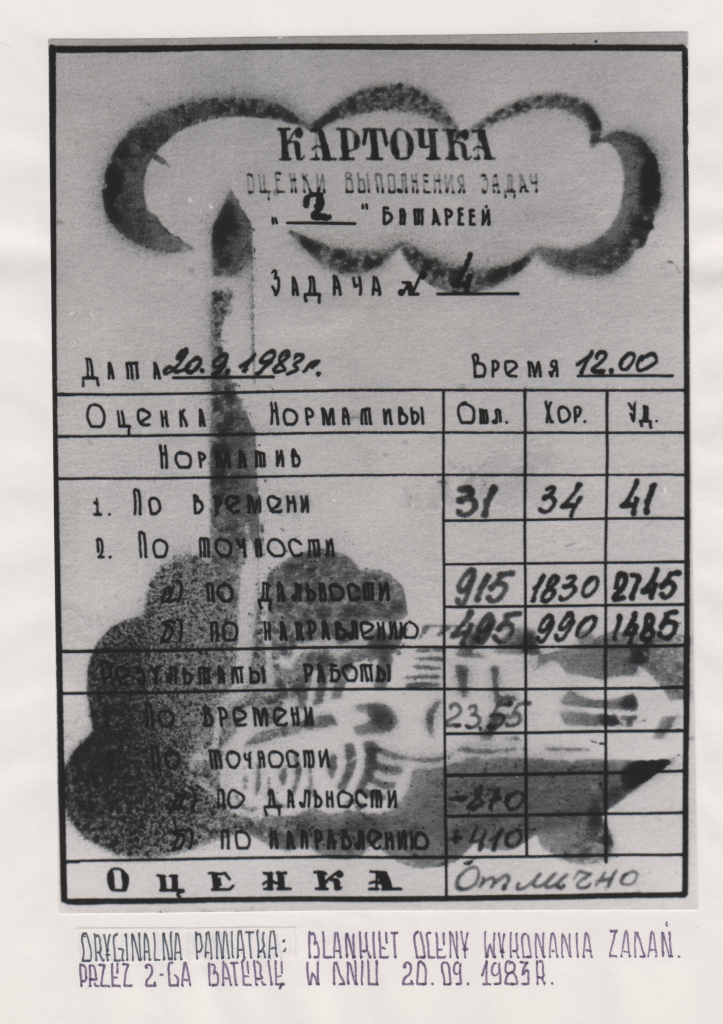 КАРТОЧКА
ОЦЕНКИ ВЫПОЛНЕНИЯ ЗАДАЧ
„ 2 " БАТАРЕЕЙ
ЗАДАЧА № 4
Дата 20.9.1983г. Время 12.00
Оценка Нормативы Отл. Хор. Уд.
Норматив
1. По времени 31 34 41
2. По точности
а) по дальности 915 1830 2745
б) по направлению 495 990 1485
Результаты работы
1. По времени 23.55
По точности
а) по дальности -870
б) по направлению +410
Оценка Отлично
ORYGINALNA PAMIĄTKA: BLANKIET OCENY WYKONANIA ZADAŃ.
PRZEZ 2-GA BATERIĘ W DNIU 20.09.1983R.